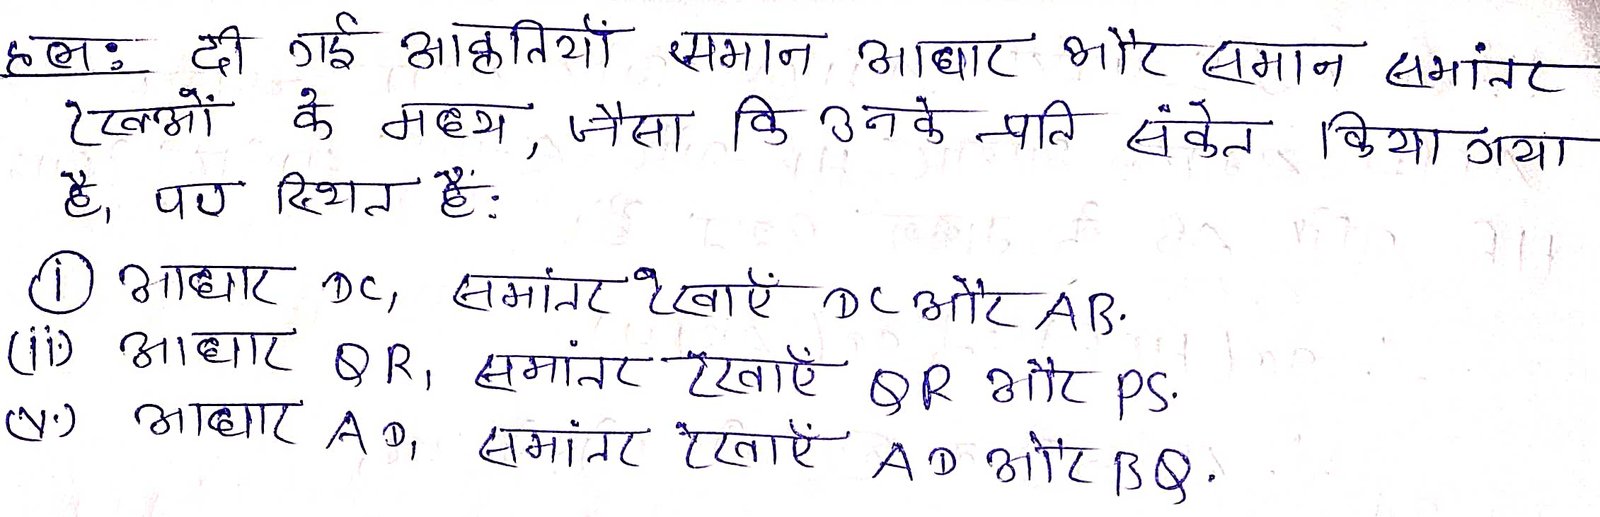 हल: दी गई आकृतियाँ समान आधार और समान समांतर
रेखाओं के मध्य, जैसा कि उनके प्रति संकेत किया गया
है, पर स्थित हैं:
(i) आधार DC, समांतर रेखाएँ DC और AB.
(ii) आधार QR, समांतर रेखाएँ QR और PS.
(v.) आधार AD, समांतर रेखाएँ AD और BQ.